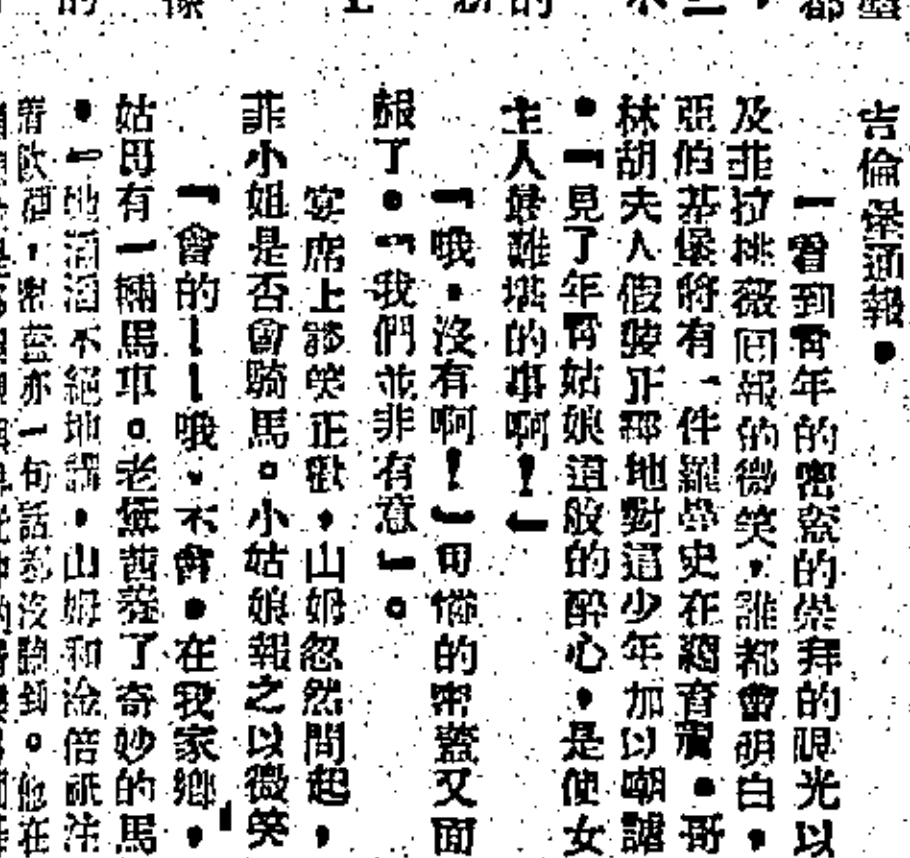 吉倫堡通報。
一看到青年的密藍的崇拜的眼光以
及菲拉挑薇回報的微笑，誰都會明白，
亞伯基堡將有一件羅曼史在 育 。哥
林胡夫人假裝正 地對這少年加以嘲謔
。「見了年青姑娘這般的醉心，是使女
主人最難堪的事啊！」
「哦，沒有啊！」可憐的密藍又面
赧了。「我們並非有意」。
宴席上談笑正歡，山姆忽然問起，
菲小姐是否會騎馬。小姑娘報之以微笑
「會的——哦、不會。在我家鄉，
姑母有一輛馬車。老 茜養了奇妙的馬
。」她滔滔不絕地講，山姆和淦倍祇注
着飲酒，密藍亦一句話都沒聽到。他在